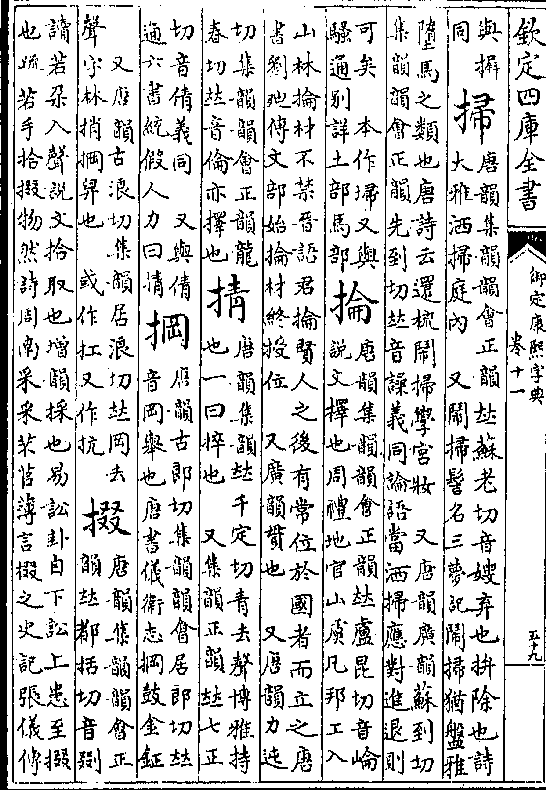 欽定四庫全書
御定康熙字典
卷十一
五十九
與摒
同
掃
唐韻集韻韻會正韻𠀤蘇老切音嫂弃也拚除也詩
大雅洒掃庭內　又鬧掃髻名三夢記鬧掃猶盤雅
墮馬之類也唐詩云還梳鬧掃學宮妝　又唐韻廣韻蘇到切
集韻韻會正韻先到切𠀤音譟義同論語當洒掃應對進退則
可矣　本作埽又與
騷通別詳土部馬部
掄
唐韻集韻韻會正韻𠀤盧昆切音崘
說文擇也周禮地官山虞凡邦工入
山林掄材不禁晉語君掄賢人之後有常位於國者而立之唐
書劉弛傳文部始掄材終授位　又廣韻貫也　又唐韻力迍
切集韻韻會正韻龍
春切𠀤音倫亦擇也
掅
唐韻集韻𠀤千定切青去聲博雅持
也一曰捽也　又集韻正韻𠀤七正
切音倩義同　又與倩
通六書統假人力曰掅
掆
唐韻古郎切集韻韻會居郎切𠀤
音岡舉也唐書儀衛志掆鼓金鉦
又唐韻古浪切集韻居浪切𠀤岡去
聲字林捎掆舁也　或作扛又作抗
掇
唐韻集韻韻會正
韻𠀤都括切音剟
讀若朶入聲說文拾取也增韻採也易訟卦自下訟上患至掇
也疏若手拾掇物然詩周南采采芣苢薄言掇之史記張儀傳